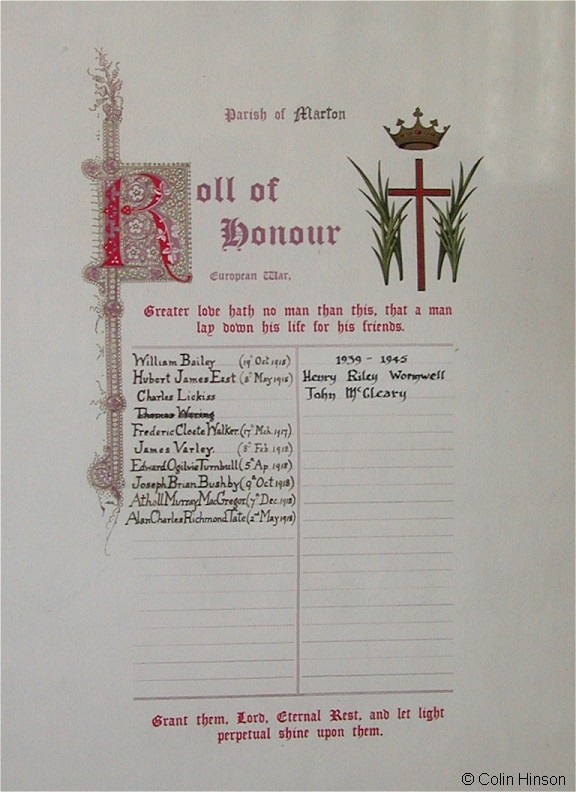 Parish of Marton
Roll of
Honour
European War.
Greater love hath no man than this, that a man
lay down his life for his friends.
William Bailey (19th Oct 1918)
Hubert James East (8th May 1918)
Charles Lickiss
Thomas Waring
Frederic Cloete Walker (17th Mch. 1917)
James Varley. (8th Feb 1918)
Edward Ogilvie Turnbull (5th Ap. 1918)
Joseph Brian Bushby (9th Oct 1918)
Atholl Murray MacGregor (7th Dec. 1918)
Alan Charles Richmond Tate (2nd May 1918)
1939 - 1945
Henry Riley Wormwell
John McCleary
Grant them, Lord, Eternal Rest, and let light
perpetual shine upon them.
© Colin Hinson